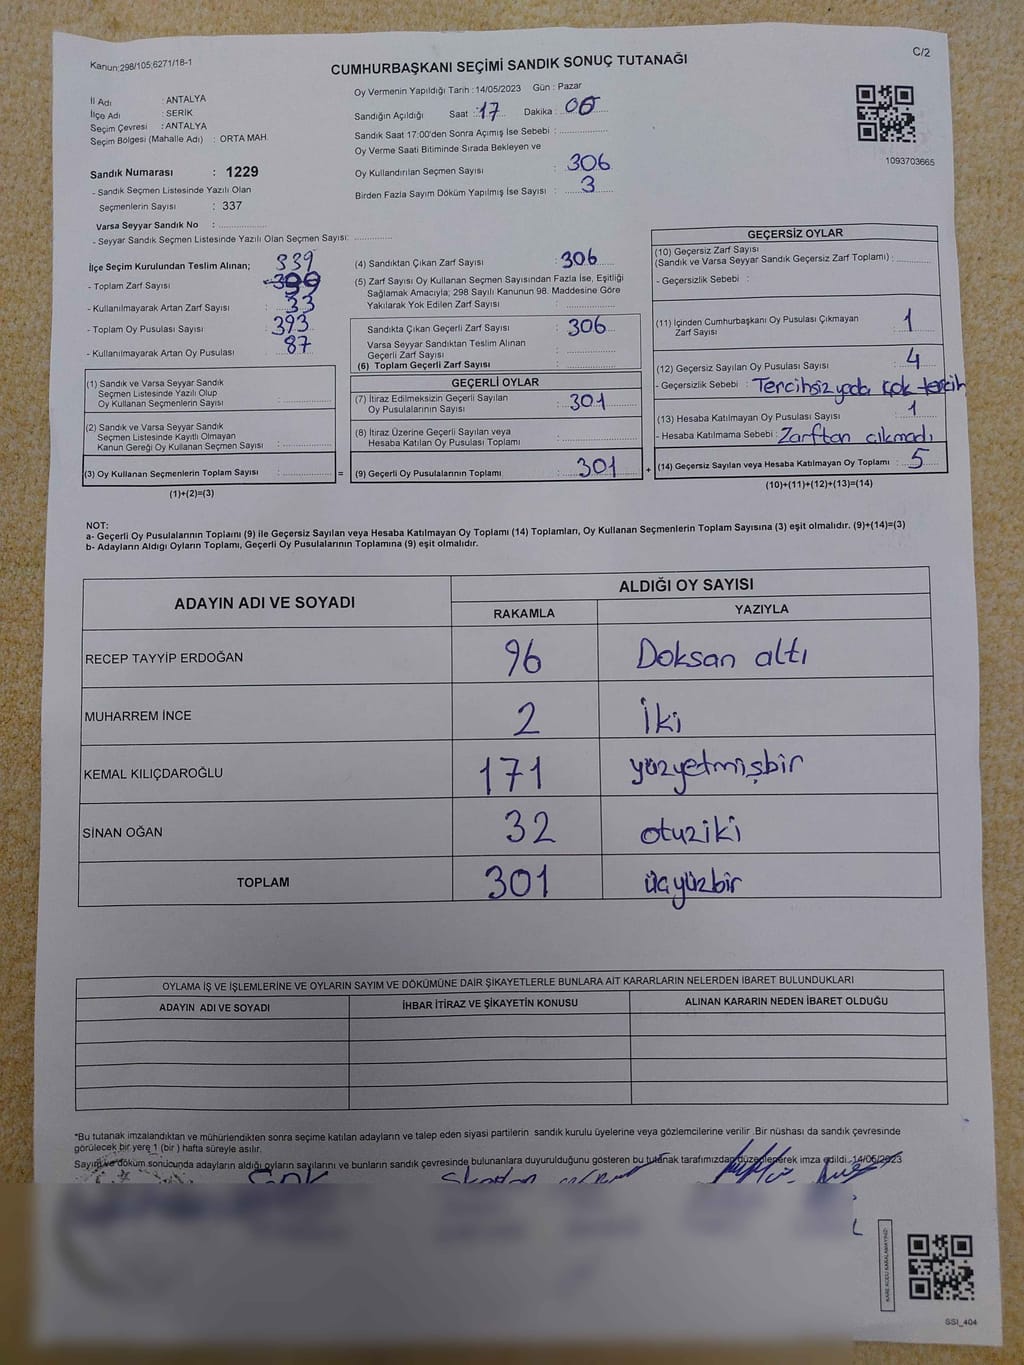 Kanun:298/105;6271/18-1
C/2
CUMHURBAŞKANI SEÇİMİ SANDIK SONUÇ TUTANAĞI
İl Adı : ANTALYA
İlçe Adı : SERİK
Seçim Çevresi : ANTALYA
Seçim Bölgesi (Mahalle Adı) : ORTA MAH.
Sandık Numarası : 1229
- Sandık Seçmen Listesinde Yazılı Olan
Seçmenlerin Sayısı : 337
Varsa Seyyar Sandık No :
- Seyyar Sandık Seçmen Listesinde Yazılı Olan Seçmen Sayısı:
Oy Vermenin Yapıldığı Tarih : 14/05/2023 Gün : Pazar
Sandığın Açıldığı Saat : 17 Dakika : 00
Sandık Saat 17:00'den Sonra Açımış İse Sebebi :
Oy Verme Saati Bitiminde Sırada Bekleyen ve
Oy Kullandırılan Seçmen Sayısı : 306
Birden Fazla Sayım Döküm Yapılmış İse Sayısı : 3
1093703665
İlçe Seçim Kurulundan Teslim Alınan;
339
- Toplam Zarf Sayısı :
- Kullanılmayarak Artan Zarf Sayısı : 33
- Toplam Oy Pusulası Sayısı : 393
- Kullanılmayarak Artan Oy Pusulası : 87
(1) Sandık ve Varsa Seyyar Sandık
Seçmen Listesinde Yazılı Olup
Oy Kullanan Seçmenlerin Sayısı :
(2) Sandık ve Varsa Seyyar Sandık
Seçmen Listesinde Kayıtlı Olmayan
Kanun Gereği Oy Kullanan Seçmen Sayısı :
(3) Oy Kullanan Seçmenlerin Toplam Sayısı : =
(1)+(2)=(3)
(4) Sandıktan Çıkan Zarf Sayısı : 306
(5) Zarf Sayısı Oy Kullanan Seçmen Sayısından Fazla İse, Eşitliği
Sağlamak Amacıyla; 298 Sayılı Kanunun 98. Maddesine Göre
Yakılarak Yok Edilen Zarf Sayısı :
Sandıkta Çıkan Geçerli Zarf Sayısı : 306
Varsa Seyyar Sandıktan Teslim Alınan
Geçerli Zarf Sayısı :
(6) Toplam Geçerli Zarf Sayısı :
GEÇERLİ OYLAR
(7) İtiraz Edilmeksizin Geçerli Sayılan
Oy Pusulalarının Sayısı : 301
(8) İtiraz Üzerine Geçerli Sayılan veya
Hesaba Katılan Oy Pusulası Toplamı :
(9) Geçerli Oy Pusulalarının Toplamı : 301 +
GEÇERSİZ OYLAR
(10) Geçersiz Zarf Sayısı
(Sandık ve Varsa Seyyar Sandık Geçersiz Zarf Toplamı) :
- Geçersizlik Sebebi :
(11) İçinden Cumhurbaşkanı Oy Pusulası Çıkmayan
Zarf Sayısı : 1
(12) Geçersiz Sayılan Oy Pusulası Sayısı : 4
- Geçersizlik Sebebi : Tercihsiz yada çok tercih
(13) Hesaba Katılmayan Oy Pusulası Sayısı : 1
- Hesaba Katılmama Sebebi : Zarftan çıkmadı
(14) Geçersiz Sayılan veya Hesaba Katılmayan Oy Toplamı : 5
(10)+(11)+(12)+(13)=(14)
NOT:
a- Geçerli Oy Pusulalarının Toplamı (9) ile Geçersiz Sayılan veya Hesaba Katılmayan Oy Toplamı (14) Toplamları, Oy Kullanan Seçmenlerin Toplam Sayısına (3) eşit olmalıdır. (9)+(14)=(3)
b- Adayların Aldığı Oyların Toplamı, Geçerli Oy Pusulalarının Toplamına (9) eşit olmalıdır.
ADAYIN ADI VE SOYADI ALDIĞI OY SAYISI
RAKAMLA YAZIYLA
RECEP TAYYİP ERDOĞAN 96 Doksan altı
MUHARREM İNCE 2 İki
KEMAL KILIÇDAROĞLU 171 yüzyetmişbir
SİNAN OĞAN 32 otuziki
TOPLAM 301 üçyüzbir
OYLAMA İŞ VE İŞLEMLERİNE VE OYLARIN SAYIM VE DÖKÜMÜNE DAİR ŞİKAYETLERLE BUNLARA AİT KARARLARIN NELERDEN İBARET BULUNDUKLARI
ADAYIN ADI VE SOYADI İHBAR İTİRAZ VE ŞİKAYETİN KONUSU ALINAN KARARIN NEDEN İBARET OLDUĞU
*Bu tutanak imzalandıktan ve mühürlendikten sonra seçime katılan adayların ve talep eden siyasi partilerin sandık kurulu üyelerine veya gözlemcilerine verilir. Bir nüshası da sandık çevresinde
görülecek bir yere 1 (bir ) hafta süreyle asılır.
Sayım ve döküm sonucunda adayların aldığı oyların sayılarını ve bunların sandık çevresinde bulunanlara duyurulduğunu gösteren bu tutanak tarafımızdan düzenlenerek imza edildi. 14/05/2023
KARE KODU KARALAMAYINIZ!
SSI_404